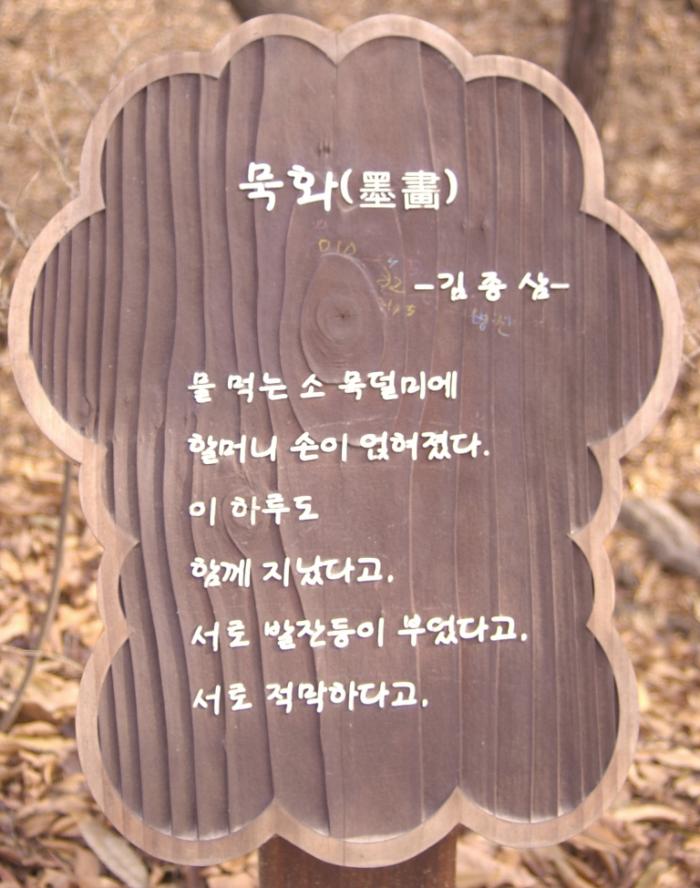 묵화(墨畵)
-김종삼-
물 먹는 소 목덜미에
할머니 손이 얹혀졌다.
이 하루도
함께 지났다고.
서로 발잔등이 부었다고.
서로 적막하다고.